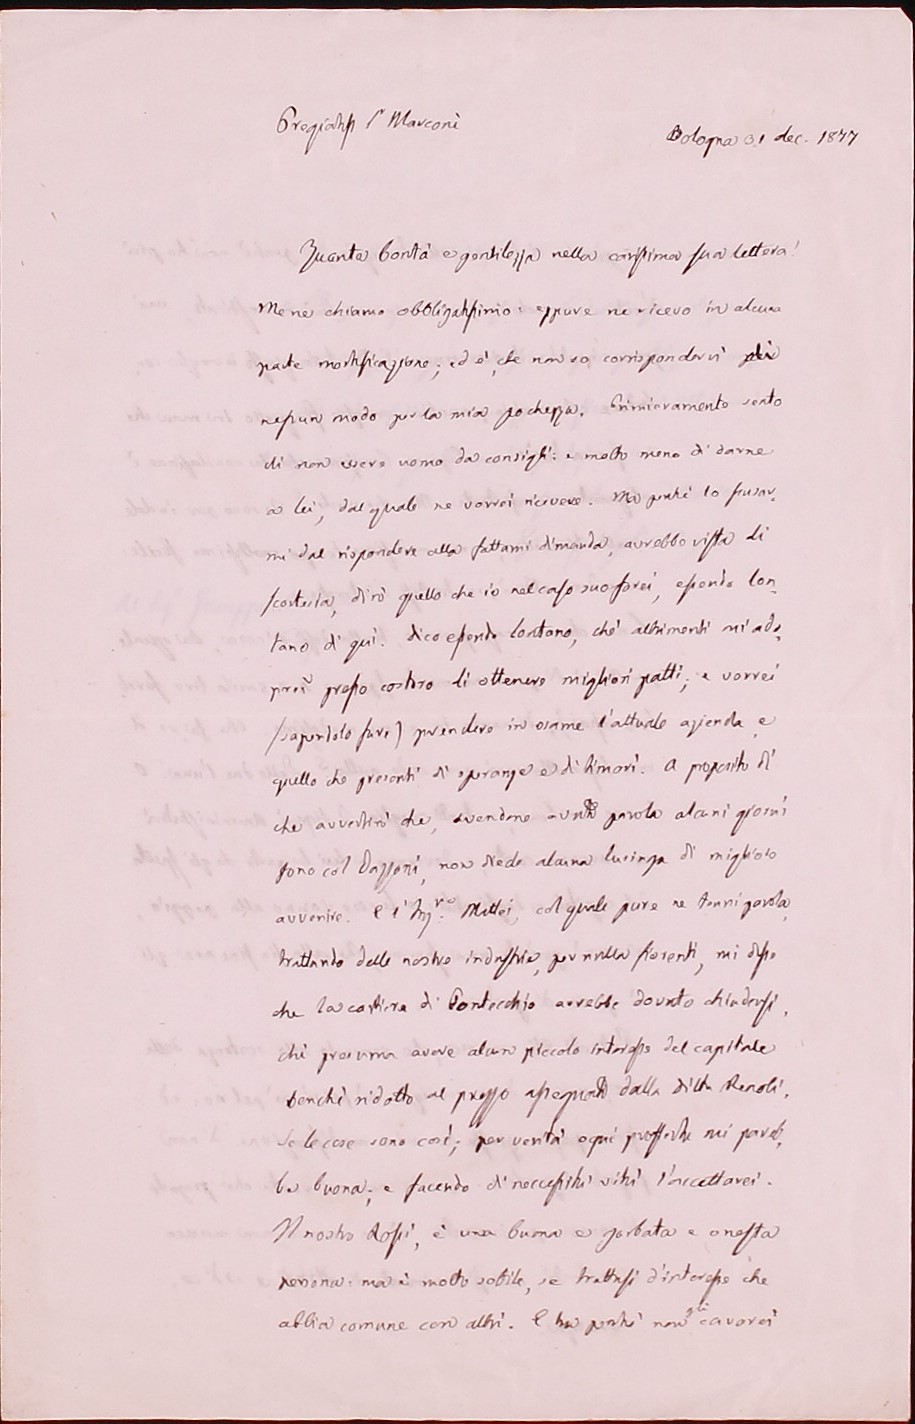 Pregiatiss. Sr Marconi
Bologna 31 dec. 1877
Quanta bontà e gentilezza nella carissima sua lettera!
Me ne chiamo obbligatissimo: eppure ne ricevo in alcuna
parte mortificazione; ed è, che non so corrispondervi
nessun modo per la mia pochezza. Primieramente sento
di non essere uomo da consigli: e molto meno di darne
a lei, dal quale ne vorrei ricevere. Ma perché lo scusar-
mi dal rispondere alla fattami dimanda, avrebbe vista di
scortesia, dirò quello che io nel caso suo farei, essendo lon-
tano di quì. Dico essendo lontano, ché altrimenti mi ado-
prerei presso costoro di ottenere migliori patti; e vorrei
(sapendolo fare) prendere in esame l'attuale azienda, e
quello che presenti di speranze e di timori. A proposito di
che avvertirò che, avendone avuto parola alcuni giorni
sono col Dazzani, non vede alcuna lusinga di migliore
avvenire. E l'Ingre. Mattei, col quale pure ne tenni parola,
trattando delle nostre industrie, per nulla fiorenti, mi disse
che la cartiera di Pontecchio avrebbe dovuto chiudersi,
chi presuma avere alcun piccolo interesse del capitale
benchè ridotto al prezzo assegnato dalla ditta Renoli.
Se le cose sono così; per verità ogni proferta mi pareb-
be buona; e facendo di necessità virtù l'accetterei.
Il nostro Rossi, è una buona e garbata e onesta
persona: ma è molto sottile, se trattasi d'interesse che
abbia comune con altri. E perché non gli caverei